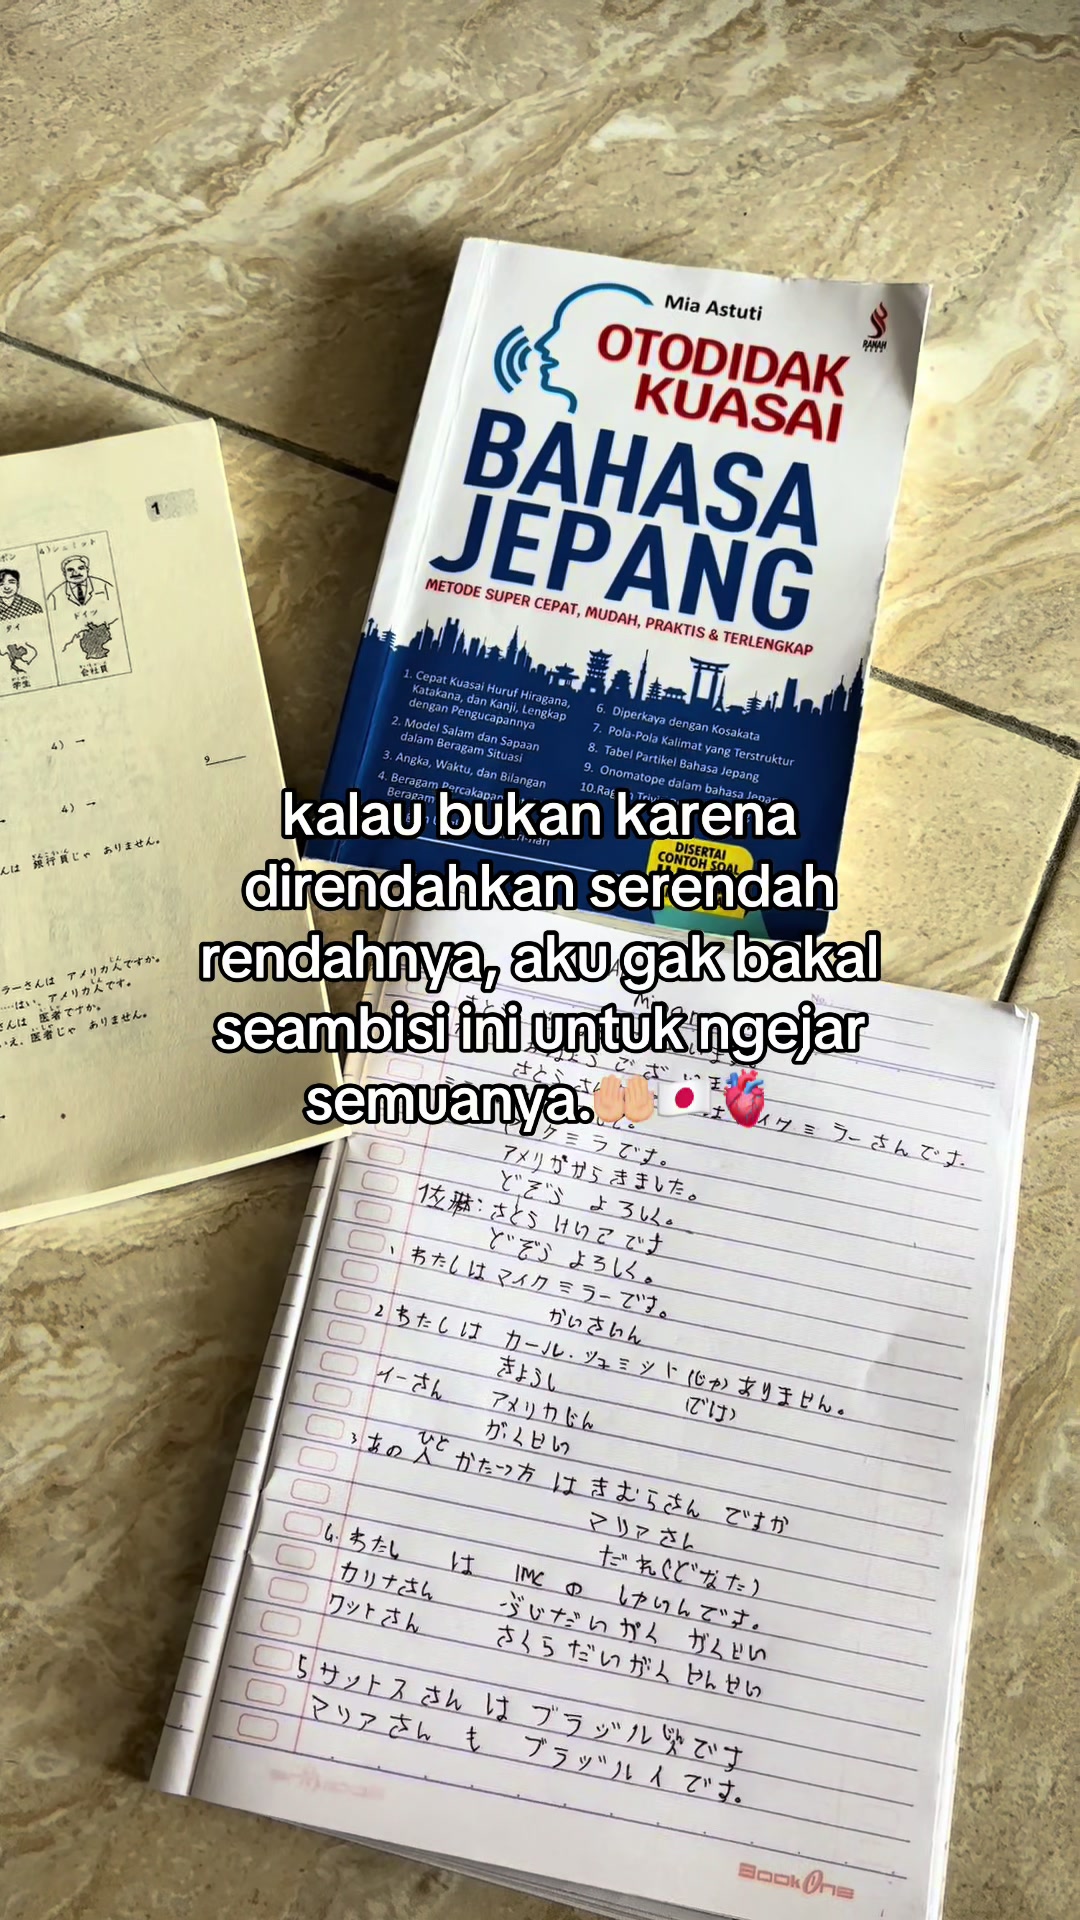 Mia Astuti
OTODIDAK
KUASAI
BAHASA
JEPANG
METODE SUPER CEPAT, MUDAH, PRAKTIS & TERLENGKAP
1. Cepat Kuasai Huruf Hiragana,
Katakana, dan Kanji, Lengkap
dengan Pengucapannya
2. Model Salam dan Sapaan
dalam Beragam Situasi
3. Angka, Waktu, dan Bilangan
4. Beragam Percakapan
6. Diperkaya dengan Kosakata
7. Pola-Pola Kalimat yang Terstruktur
8. Tabel Partikel Bahasa Jepang
9. Onomatope dalam bahasa
DISERTAI
CONTOH SOAL
1
4) シュミット
タイ
ドイツ
学生
会社員
4) →
9
4) →
銀行員じゃ ありません。
ラーさんは アメリカ人ですか。
……はい、アメリカ人です。
さんは 医者ですか。
医者じゃ ありません。
kalau bukan karena
direndahkan serendah
rendahnya, aku gak bakal
seambisi ini untuk ngejar
semuanya.🤲🏼🇯🇵🫀
ミラーさんです.
ミラです。
アメリかからきました。
どぞう よろしく。
さとう けいこです
どぞう よろしく。
1 わたしはマイクミラーです。
かいさいん
2 わたしは カール. (じゃ) ありません。
きょうし (では)
イーさん アメリカじん
がくせい
3 あの 人 ひと かたつ方 はきむらさん ですか
マリアさん
だれ(どなた)
4. わたし は IMC の しゃいんです。
カリナさん ふじだいがく がくせい
ワットさん さくらだいがく せんせい
5 サットスさん は ブラヅル じん 人 です
マリアさん も ブラヅル人 です。
BookOne